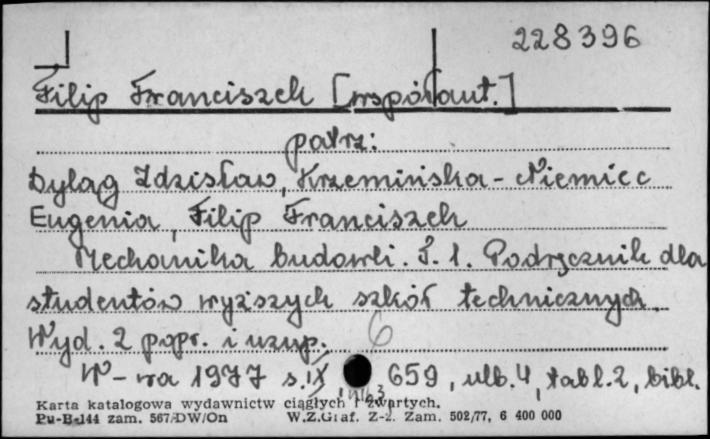 228396
Filip Franciszek [współaut.]
patrz:
Dyląg Zdzisław, Krzemińska-Niemiec
Eugenia, Filip Franciszek
Mechanika budowli. T. 1. Podręcznik dla
studentów wyższych szkół technicznych.
Wyd. 2 popr. i uzup.
6
W-wa 1977 s. IX 659, ulb. 4, tabl. 2, bibl.
Karta katalogowa wydawnictw ciągłych i zwartych.
Pu-B-144 zam. 567/DW/On W.Z.Graf. Z-2. Zam. 502/77, 6 400 000